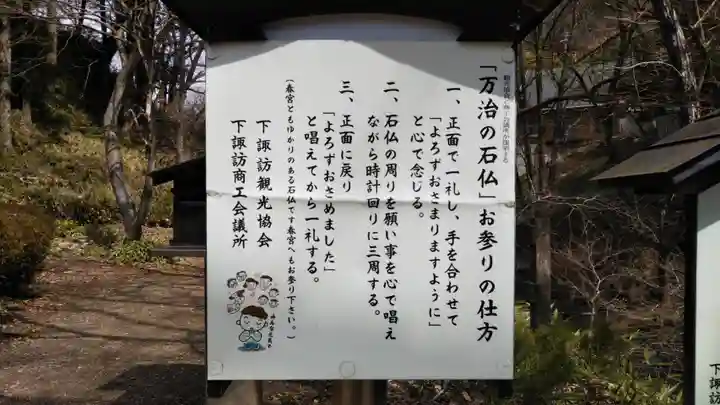 「万治の石仏」お参りの仕方
一、正面で一礼し、手を合わせて
「よろずおさまりますように」
と心で念じる。
二、石仏の周りを願い事を心で唱え
ながら時計回りに三周する。
三、正面に戻り
「よろずおさめました」
と唱えてから一礼する。
（春宮ともゆかりのある石仏です春宮へもお参り下さい。）
下諏訪観光協会
下諏訪商工会議所
みんな元気の
下諏訪